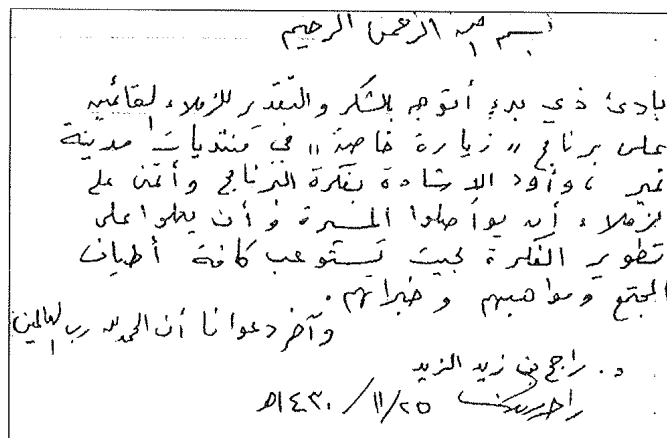 بسم الله الرحمن الرحيم
بادئ ذي بدء أتوجه بالشكر والتقدير للزملاء القائمين
على برنامج "زيارة خاصة" في منتديات مدينة
تمير ، وأود الاشادة بفكرة البرنامج وأتمنى على
الزملاء أن يواصلوا المسيرة وأن يعملوا على
تطوير الفكرة بحيث تستوعب كافة أطياف
المجتمع ومواهبهم وخبراتهم.
وآخر دعوانا أن الحمد لله رب العالمين
د. راجح بن زيد الزيد
١٤٣٠/١١/٢٥هـ